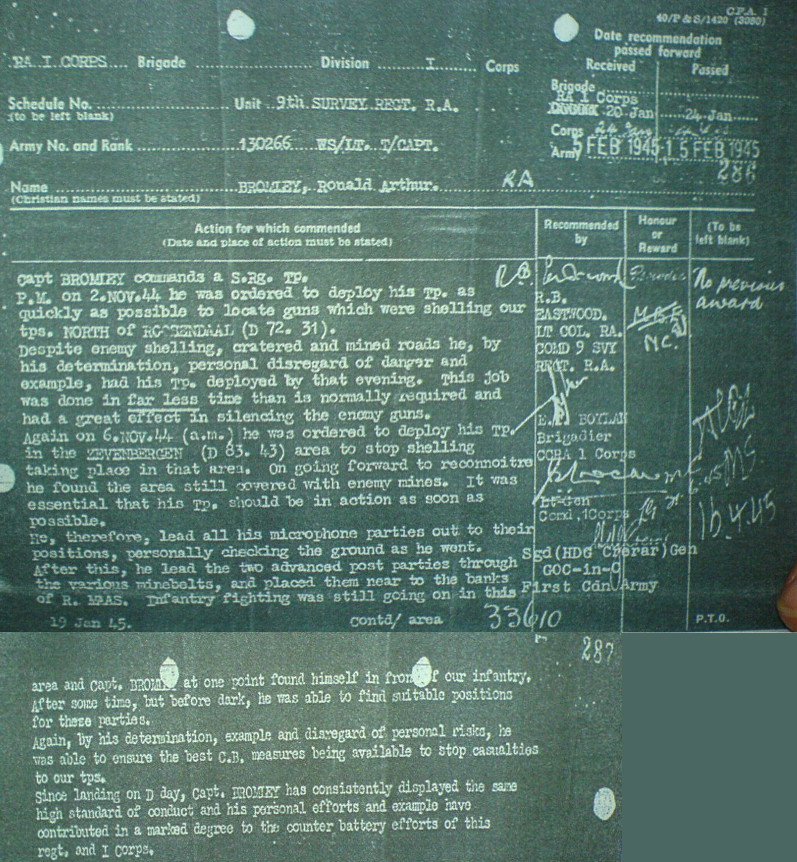 C.P.A. 1
40/P & S/1420 (3080)
Date recommendation
passed forward
Received Passed
RA I CORPS Brigade Division I Corps
Brigade
RA I Corps
20 Jan 24 Jan
Schedule No.
(to be left blank)
Unit 9th SURVEY REGT. R.A.
Corps
Army No. and Rank 130266 WS/LT. T/CAPT.
Army 5 FEB 1945 15 FEB 1945
286
Name BROMLEY, Ronald Arthur. RA
(Christian names must be stated)
Action for which commended
(Date and place of action must be stated)
Recommended
by
Honour
or
Reward
(To be
left blank)
Capt BROMLEY commands a S.Rg. TP.
P.M. on 2.NOV.44 he was ordered to deploy his TP. as
quickly as possible to locate guns which were shelling our
tps. NORTH of ROSSENDAAL (D 72. 31).
Despite enemy shelling, cratered and mined roads he, by
his determination, personal disregard of danger and
example, had his TP. deployed by that evening. This job
was done in far less time than is normally required and
had a great effect in silencing the enemy guns.
Again on 6.NOV.44 (a.m.) he was ordered to deploy his TP.
in the ZEVENBERGEN (D 83. 43) area to stop shelling
taking place in that area. On going forward to reconnoitre
he found the area still covered with enemy mines. It was
essential that his TP. should be in action as soon as
possible.
He, therefore, lead all his microphone parties out to their
positions, personally checking the ground as he went.
After this, he lead the two advanced post parties through
the various minebelts, and placed them near to the banks
of R. MAAS. Infantry fighting was still going on in this
19 Jan 45. contd/ area
R.B.
R.B.
EASTWOOD.
LT COL. RA.
COMD 9 SVY
REGT. R.A.
BOYLAN
Brigadier
CCRA 1 Corps
Lt-Gen
Comd, 1Corps
Sgd(HDG Crerar)Gen
GOC-in-C
First Cdn Army
33610
Periodic
M.B.E.
M.C.
No previous
award
16.4.45
P.T.O.
287
area and Capt. BROMLEY at one point found himself in front of our infantry.
After some time, but before dark, he was able to find suitable positions
for these parties.
Again, by his determination, example and disregard of personal risks, he
was able to ensure the best C.B. measures being available to stop casualties
to our tps.
Since landing on D day, Capt. BROMLEY has consistently displayed the same
high standard of conduct and his personal efforts and example have
contributed in a marked degree to the counter battery efforts of this
regt. and I Corps.